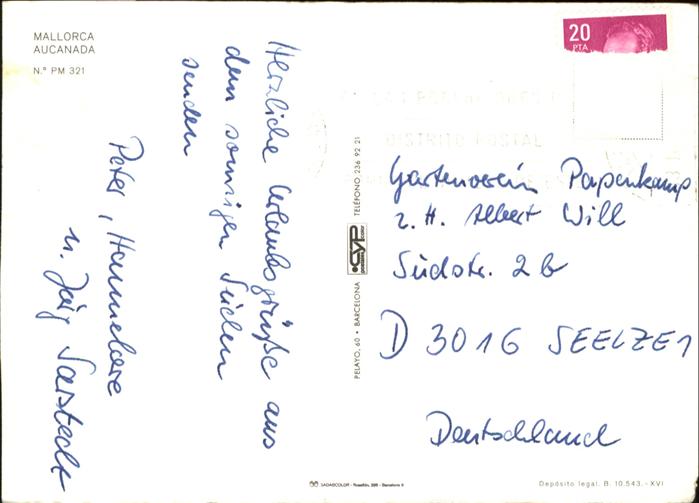 MALLORCA
AUCANADA
N.º PM 321
Herzliche Urlaubsgrüße aus
dem sonnigen Süden
senden
Peter, Hannelore
u. Jörg Sarstedt
20
PTA
DISTRITO POSTAL
PELAYO, 60 • BARCELONA TELÉFONO 236 92 21
Gartenverein Papenkamp
z. H. Albert Will
Südstr. 2b
D 3016 SEELZE 1
Deutschland
Depósito legal. B. 10.543. - XVI